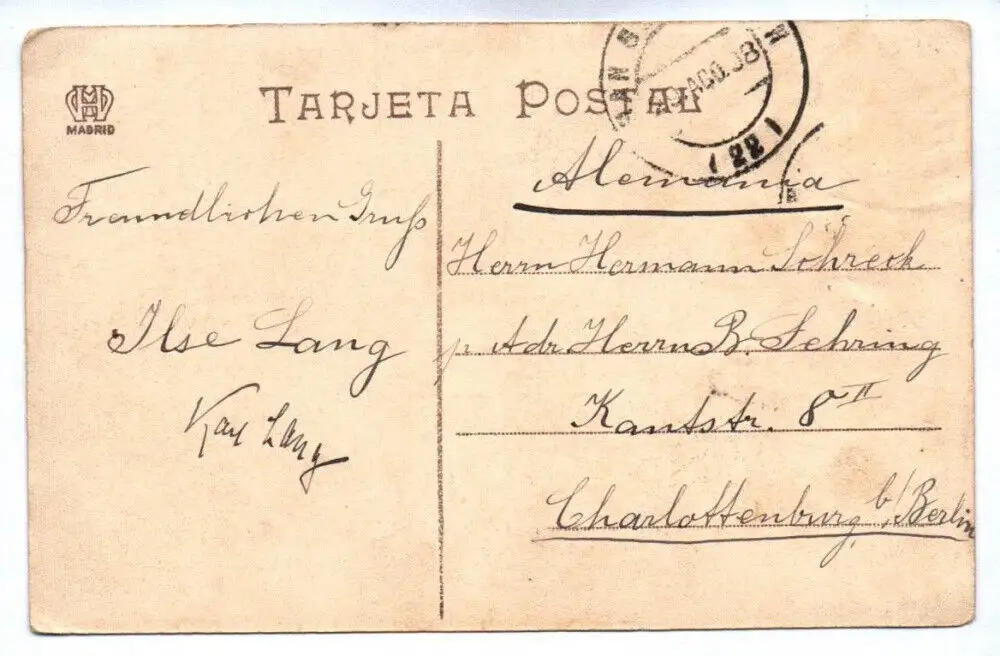 MADRID
TARJETA POSTAL
SAN S N
AGO.08
(22)
Alemania
Freundlichen Gruß
Ilse Lang
Karl Lang
Herrn Hermann Schreck
p Adr Herrn B. Sehring
Kantstr. 8 II
Charlottenburg b/Berlin